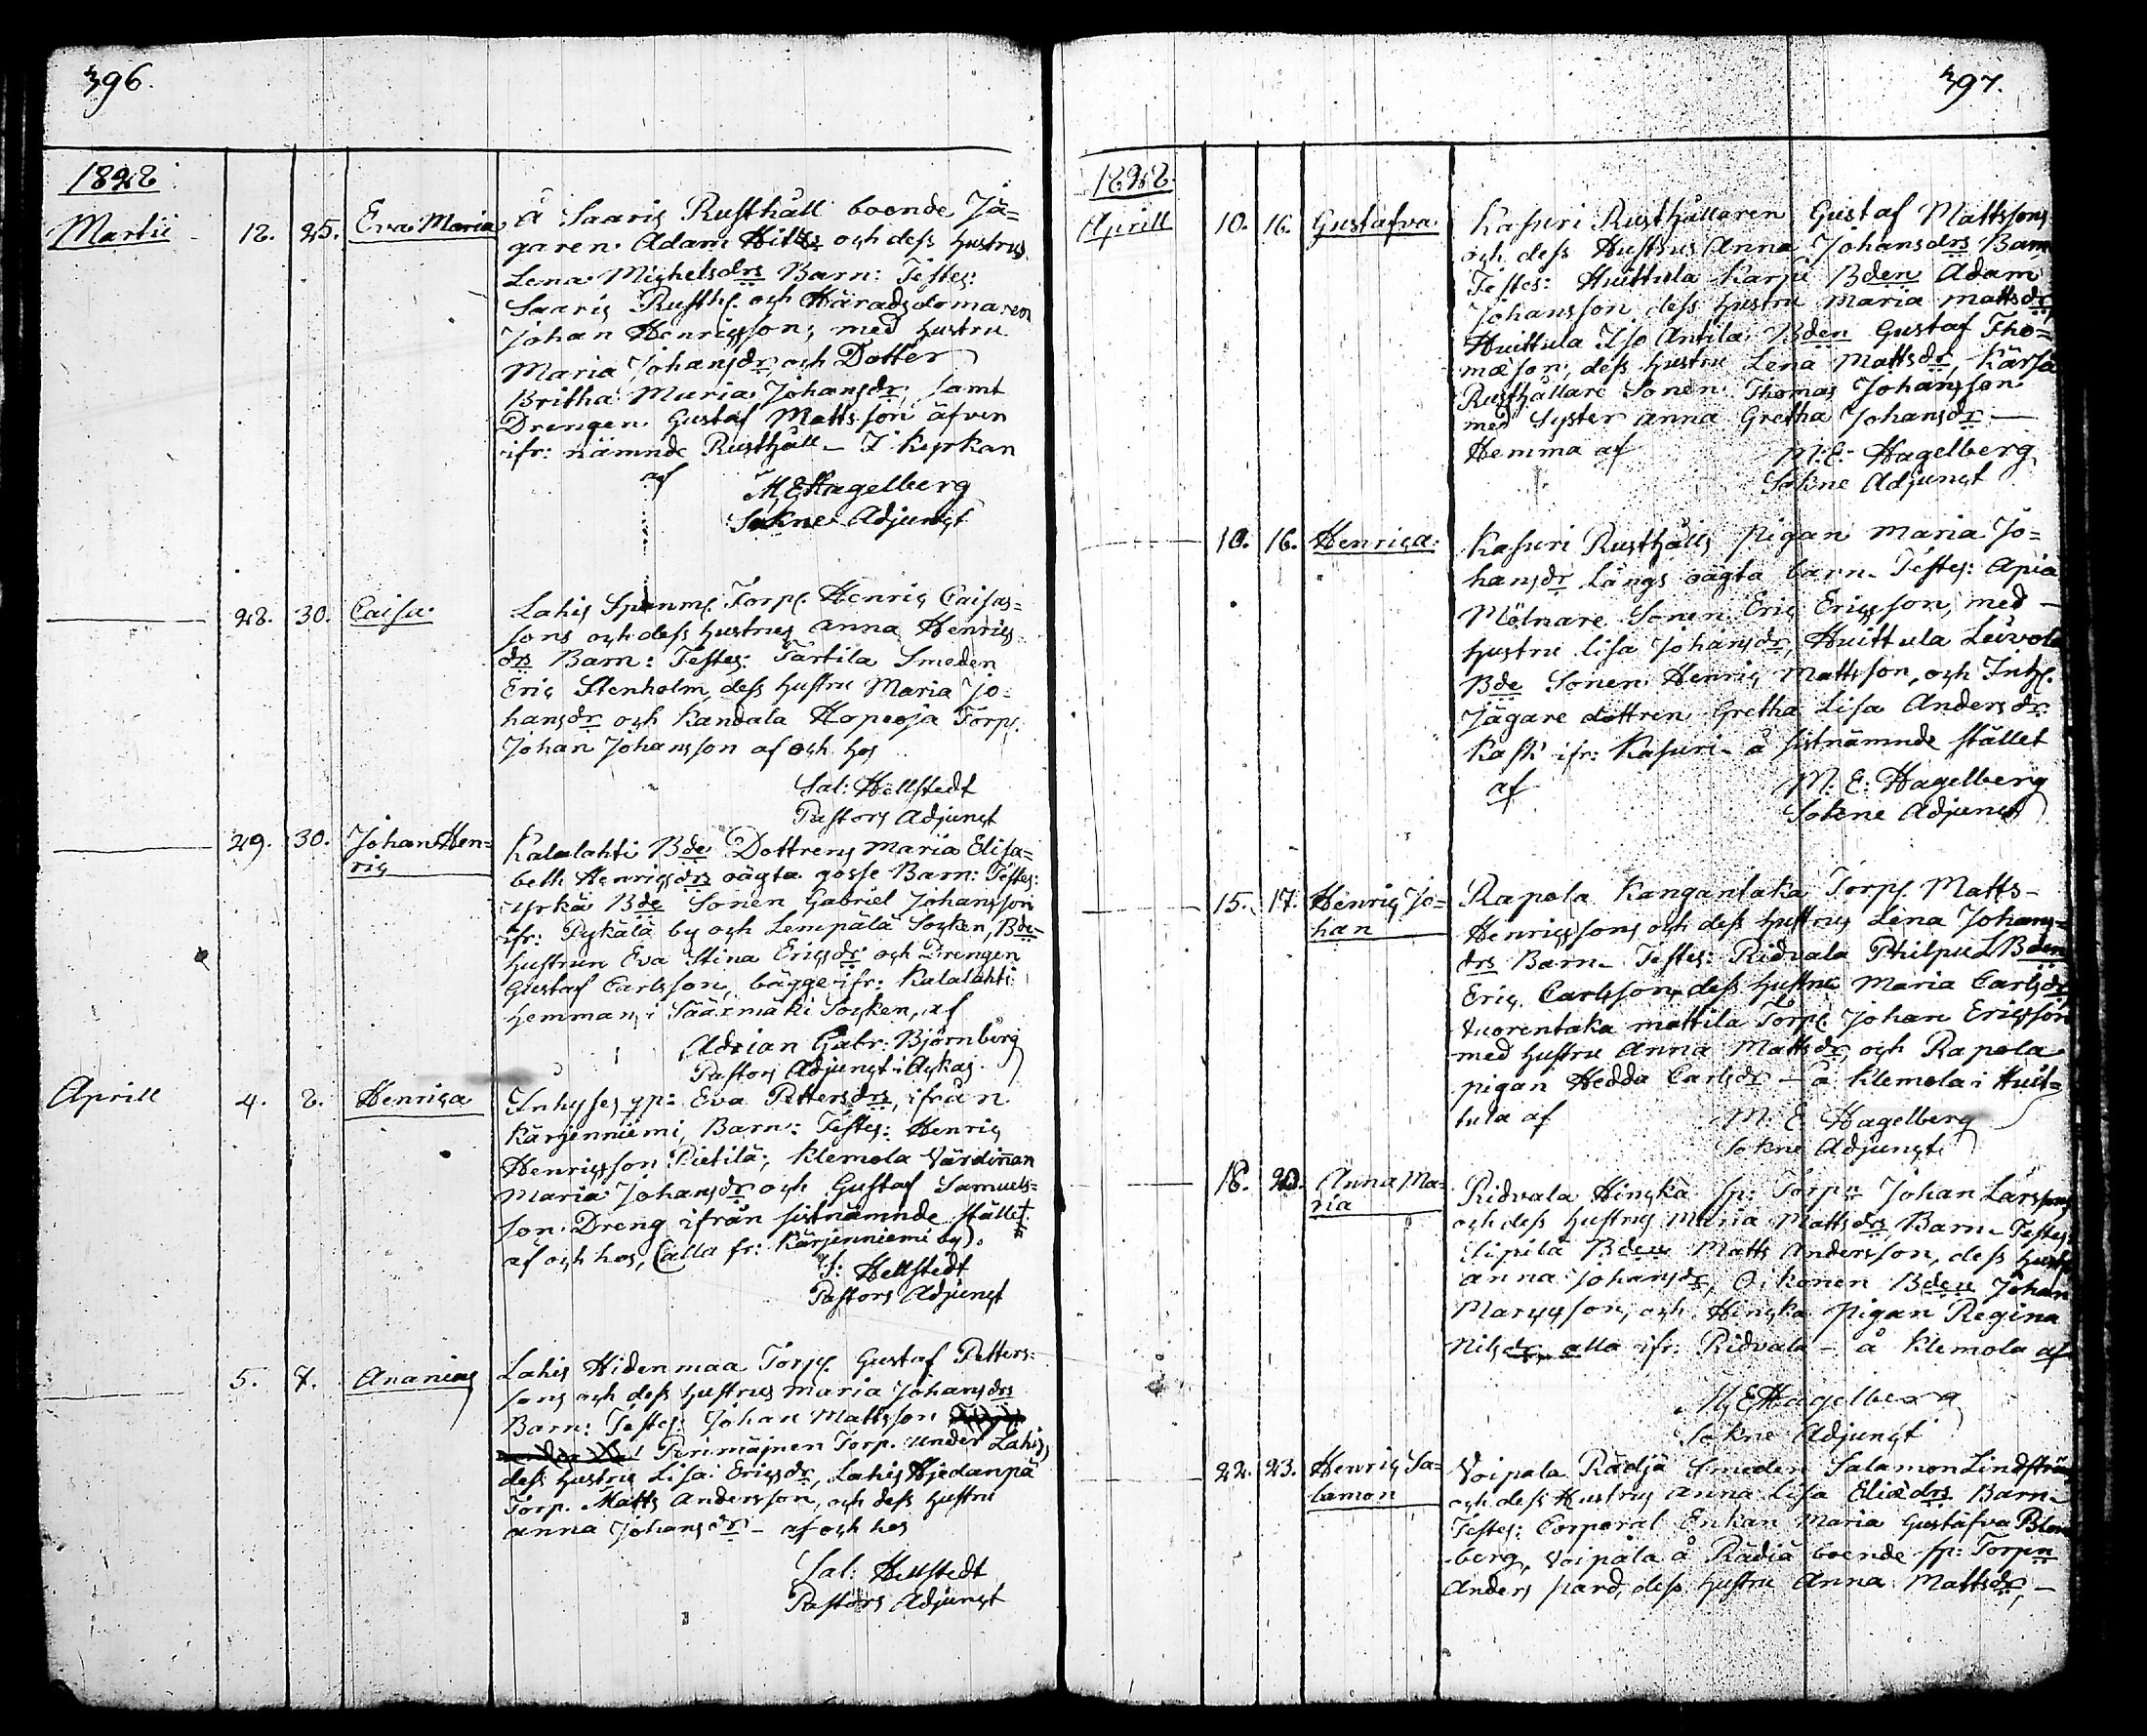 396.
1828
Martii 18. 25. Eva Maria
Å Saaris Rusthåll boende Jä=
garen Adam Hitts och dess hustrus
Lena Michelsdrs Barn: Testes:
Saaris Rusth. och Häradsdomaren
Johan Henricsson, med hustru
Maria Johansdr och Dotter
Britha Maria Johansdr, samt
Drengen Gustaf Mattsson äfven
ifr: nämnde Rusthåll – I kyrkan
af M. E. Hagelberg
Sokne Adjunct
28. 30. Caisa
Lahis Torp. Henric Caisas=
sons och dess hustrus Anna Henrics=
drs Barn: Testes: Tartila Smeden
Eric Stenholm, dess hustru Maria Jo=
hansdr och Kandala Hopeoja Torp.
Johan Johansson af och hos
Sal: Hellstedt
Pastors Adjunct
29. 30. Johan Hen=
ric
Kalalahti Bde Dottrens Maria Elisa=
beth Henricsdrs oägta gosse Barn: Testes:
Yrkä Bde Sonen Gabriel Johansson
ifr: Pykälä by och Lempälä Socken, Bde=
hustrun Eva Stina Ericsdr och Drengen
Gustaf Carlsson, bägge ifr: Kalalahti
Hemman i Säärmäki Socken, af
Adrian Gabr: Björnberg
Pastors Adjunct i Ackas.
Aprill 4. 8. Henrica
Inhyses qp: Eva Pettersdrs, ifrån
Kärjenniemi, Barn: Testes: Henric
Henricsson Pietilä, Klemola Värdinnan
Maria Johansdr och Gustaf Samuels=
son Dreng ifrån sistnämnde ställe
af och hos, (alla fr: Kärjenniemi by).
S: Hellstedt
Pastors Adjunct
5. 7. Ananias
Lahis Hidenmaa Torp. Gustaf Petters=
sons och dess hustrus Maria Johansdrs
Barn: Testes: Johan Mattsson
Perimäjnen Torp. under Lahis,
dess hustru Lisa Ericsdr, Lahis Hjedanpä
Torp. Matts Andersson, och dess hustru
Anna Johansdr – af och hos
Sal: Hellstedt
Pastors Adjunct
397.
1828.
Aprill 10. 16. Gustafva.
Kasuri Rusthållaren Gustaf Mattssons
och dess Hustrus Anna Johansdrs Barn
Testes: Huittula Karpi Bden Adam
Johansson, dess hustru Maria Mattsdr,
Huittula Iso Antila Bden Gustaf Tho=
mæson, dess hustru Lena Mattsdr, Kärsä
Rusthållare Sonen Thomas Johansson
med Syster Anna Gretha Johansdr –
Hemma af M. E. Hagelberg
Sokne Adjunct
10. 16. Henrica.
Kasuri Rusthålls Pigan Maria Jo=
hansdr Längs oägta barn. Testes: Apia
Mölnare Sonen Eric Ericsson, med –
hustru Lisa Johansdr, Huittula Leivola
Bde Sonen Henric Mattsson, och Inh.
Jägare dottren Gretha Lisa Andersdr
Kask ifr: Kasuri – å sistnämnde stället
af M: E: Hagelberg
Sokne Adjunct
15. 17. Henric Jo=
han
Rapola Kangantaka Torp. Matts
Henricssons och dess hustrus Lena Johans=
drs Barn – Testes: Ridvala Philpu LBden
Eric Carlsson, dess hustru Maria Carlsdr,
Vuorentaka Mattila Torp. Johan Ericsson
med hustru Anna Mattsdr, och Rapola
pigan Hedda Carlsdr – å Klemola i Huit=
tula af M: E. Hagelberg
Sokne Adjunct
18. 20. Anna Ma=
ria
Ridvala Hincka sp: Torp:n Johan Larssons
och dess hustrus Maria Mattsdrs Barn – Testes:
Sipilä Bden Matts Andersson, dess hustru
Anna Johansdr, Oikonen Bden Johan
Marcusson, och Hincka pigan Regina
Nilsdr, alla ifr: Ridvala – å Klemola af
M. E. Hagelberg
Sokne Adjunct
22. 23. Henric Sa=
lamon
Voipala Rädjä Smeden Salamon Lindström
och dess Hustrus Anna Lisa Eliædrs Barn –
Testes: Corporal Enkan Maria Gustafva Blom
berg, Voipala å Rädiä boende sp: Torp:n
Anders Hard, dess hustru Anna Mattsdr, –